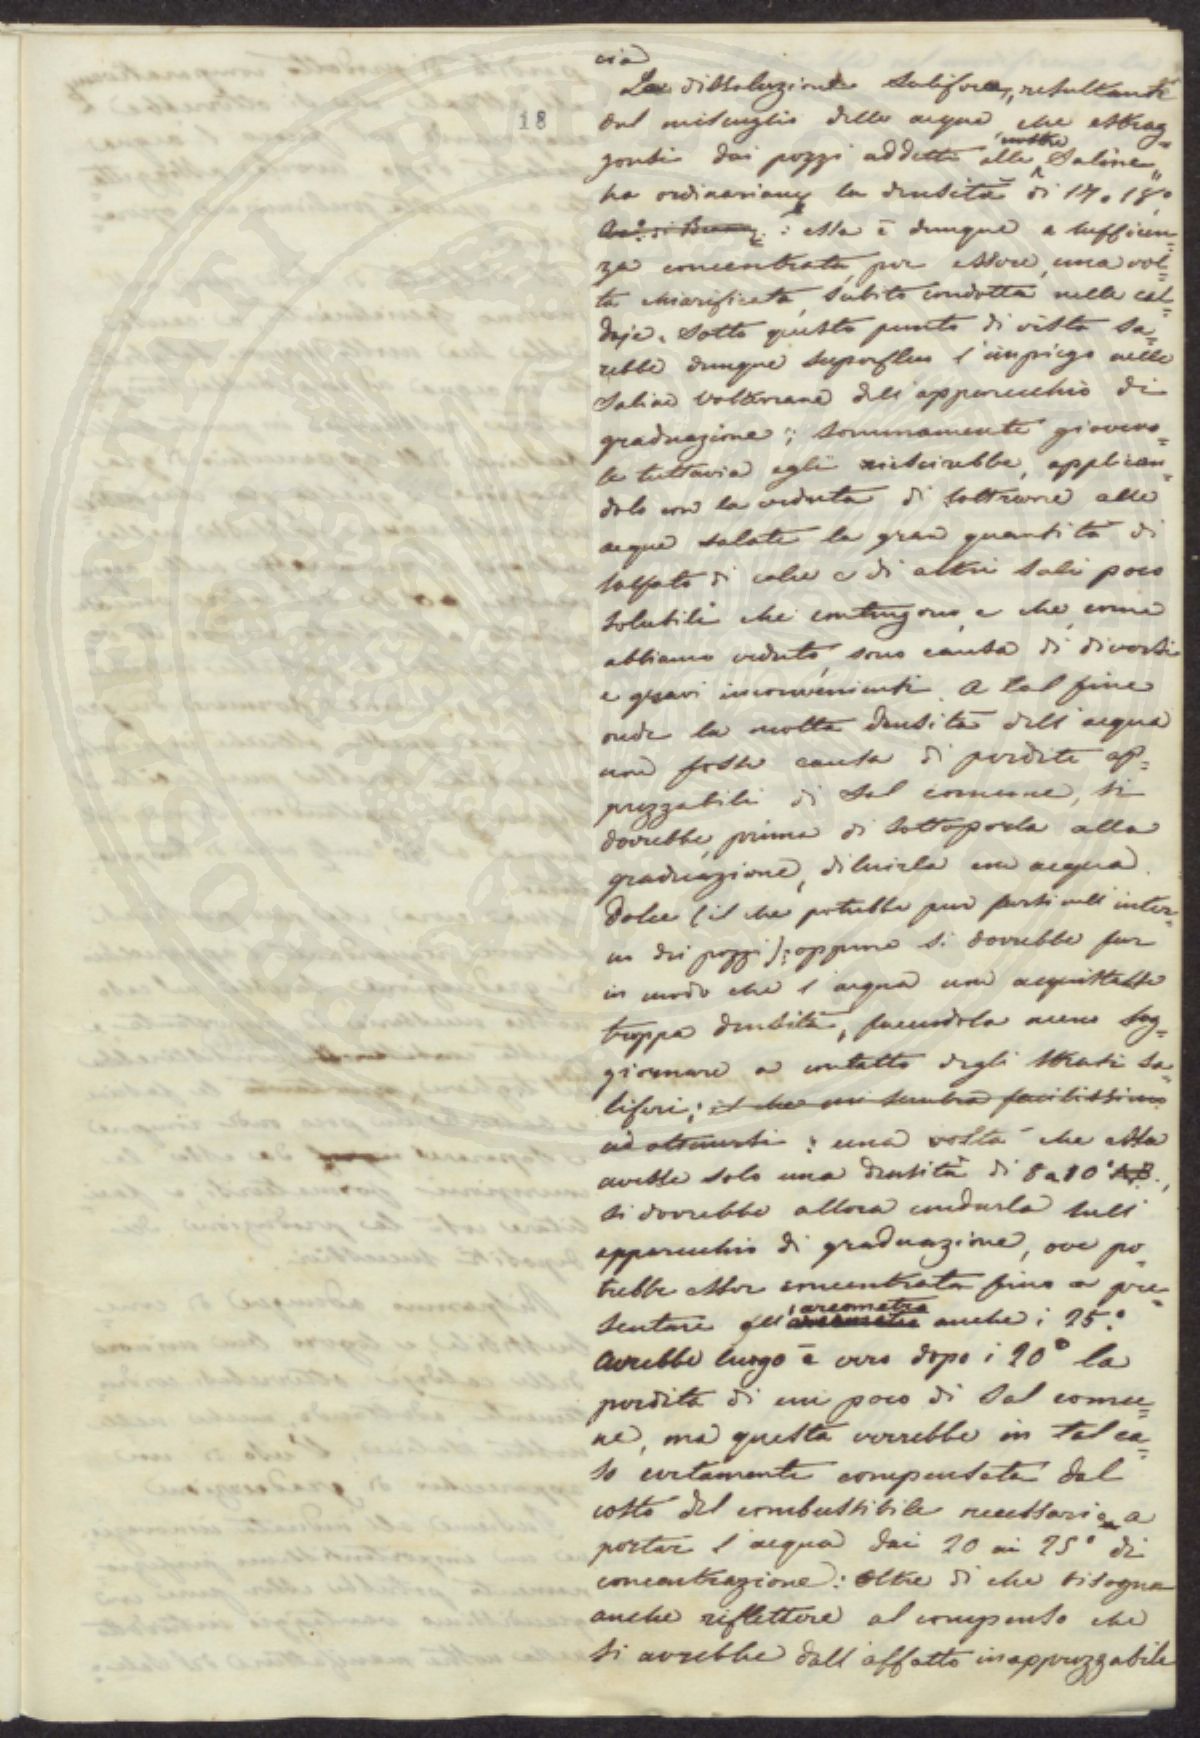 cia
La dissoluzione salifera, resultante
dal miscuglio delle acque che estrag=
18
gonsi dai pozzi addetti alle nostre Saline,
ha ordinariamte la densità di 17 a 18°
Ar.º di Beaumé : essa è dunque a sufficien=
za concentrata per essere, una vol=
ta chiarificata, subito condotta nelle cal=
daje. Sotto questo punto di vista sa=
rebbe dunque superfluo l'impiego nelle
Saline Volterrane dell'apparecchio di
graduazione; sommamente giovevo=
le tuttavia egli riescirebbe, applican=
dolo con la veduta di sottrarre alle
acque salate la gran quantità di
solfato di calce e di altri sali poco
solubili che contengono, e che, come
abbiamo veduto, sono causa di diversi
e gravi inconvenienti. A tal fine
onde la molta densità dell'acqua
non fosse causa di perdite ap=
prezzabili di Sal comune, si
dovrebbe, prima di sottoporla alla
graduazione, diluirla con acqua
dolce (il che potrebbe pur farsi nell'inter=
no dei pozzi); oppure si dovrebbe far
in modo che l'acqua non acquistasse
troppa densità, facendola meno sog=
giornare a contatto degli strati sa=
liferi; il che mi sembra facilissimo
ad ottenersi : una volta che essa
avesse solo una densità di 8 a 10° A.B.,
si dovrebbe allora condurla sull'
apparecchio di graduazione, ove po=
trebbe esser concentrata fino a pre=
sentare all'areometro anche i 25.°
Avrebbe luogo è vero dopo i 20° la
perdita di un poco di Sal comu=
ne, ma questa verrebbe in tal ca=
so certamente compensata dal
costo del combustibile necessario a
portar l'acqua dai 20 ai 25° di
concentrazione: Oltre di che bisogna
anche riflettere al compenso che
si avrebbe dall'affatto inapprezzabile